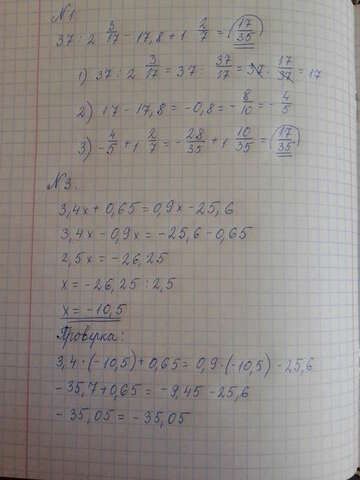 №1
37 : 2 3/17 - 17,8 + 1 2/7 = 17/35
1) 37 : 2 3/17 = 37 : 37/17 = 37 · 17/37 = 17
2) 17 - 17,8 = -0,8 = - 8/10 = - 4/5
3) - 4/5 + 1 2/7 = - 28/35 + 1 10/35 = 17/35
№3.
3,4x + 0,65 = 0,9x - 25,6
3,4x - 0,9x = -25,6 - 0,65
2,5x = -26,25
x = -26,25 : 2,5
x = -10,5
Проверка:
3,4 · (-10,5) + 0,65 = 0,9 · (-10,5) - 25,6
-35,7 + 0,65 = -9,45 - 25,6
-35,05 = -35,05